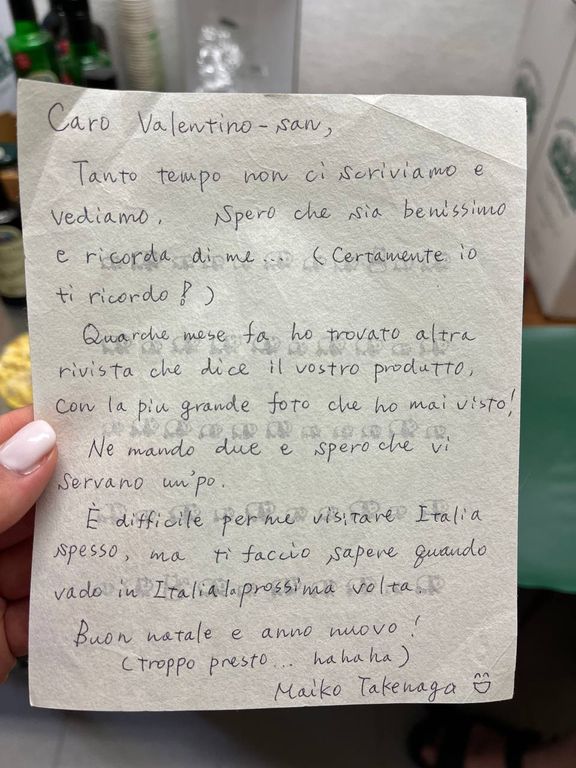 Caro Valentino-san,
Tanto tempo non ci scriviamo e
vediamo. Spero che sia benissimo
e ricorda di me... (Certamente io
ti ricordo!)
Quarche mese fa ho trovato altra
rivista che dice il vostro produtto,
con la piu grande foto che ho mai visto!
Ne mando due e spero che vi
servano un'po.
È difficile per me visitare Italia
spesso, ma ti faccio sapere quando
vado in Italia la prossima volta.
Buon natale e anno nuovo!
(troppo presto... hahaha)
Maiko Takenaga